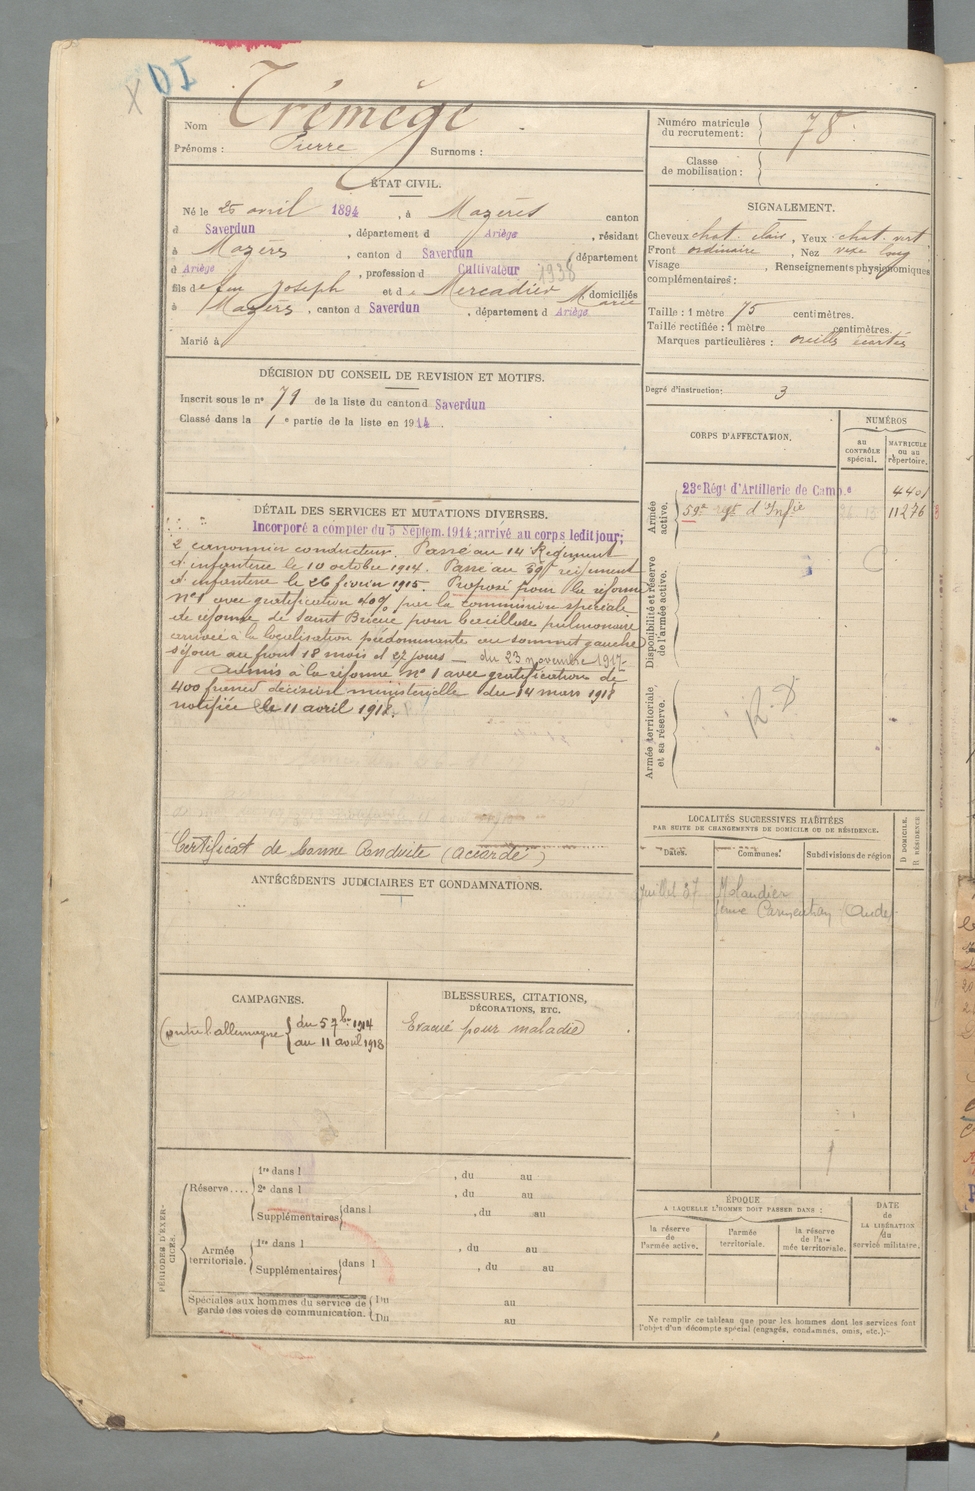 Nom Trémège
Prénoms : Pierre Surnoms :
ÉTAT CIVIL.
Né le 25 avril 1894, à Mazères canton
d Saverdun, département d Ariège, résidant
à Mazères, canton d Saverdun département
d Ariège, profession d Cultivateur 1938
fils de feu Joseph et de Mercadier Marie domiciliés
à Mazères, canton d Saverdun, département d Ariège.
Marié à
DÉCISION DU CONSEIL DE REVISION ET MOTIFS.
Inscrit sous le n° 71 de la liste du canton d Saverdun
Classé dans la 1e partie de la liste en 1914.
DÉTAIL DES SERVICES ET MUTATIONS DIVERSES.
Incorporé à compter du 5 Septem. 1914; arrivé au corps ledit jour;
2 canonnier conducteur. Passé au 14 Régiment
d'infanterie le 10 octobre 1914. Passé au 59e régiment
d'infanterie le 26 février 1915. Proposé pour la réforme
n° 1 avec gratification 40% par la commission spéciale
de réforme de Saint Brieuc pour bacillose pulmonaire
à la localisation prédominante au sommet gauche
séjour au front 18 mois et 27 jours — du 23 novembre 1917
Admis à la réforme n° 1 avec gratification de
400 francs décision ministérielle du 14 mars 1918
notifiée le 11 avril 1918.
Certificat de bonne Conduite (accordé)
ANTÉCÉDENTS JUDICIAIRES ET CONDAMNATIONS.
CAMPAGNES.
Contre l'allemagne du 5 7bre 1914
au 11 avril 1918
BLESSURES, CITATIONS,
DÉCORATIONS, ETC.
Evacué pour maladie
PÉRIODES D'EXERCICES.
Réserve.... 1re dans l , du au
2e dans l , du au
Supplémentaires dans l , du au
Armée territoriale. 1re dans l , du au
Supplémentaires dans l , du au
Spéciales aux hommes du service de Du au
garde des voies de communication. Du au
Numéro matricule
du recrutement : 78
Classe
de mobilisation :
SIGNALEMENT.
Cheveux chat. clair, Yeux chat. vert
Front ordinaire, Nez long
Visage , Renseignements physionomiques
complémentaires :
Taille : 1 mètre 75 centimètres.
Taille rectifiée : 1 mètre centimètres.
Marques particulières : oreilles écartées
Degré d'instruction : 3
CORPS D'AFFECTATION.
NUMÉROS
au
CONTRÔLE
spécial.
MATRICULE
ou au
répertoire.
Armée
active.
23e Régt d'Artillerie de Campe 4401
59e rgt d'Infie 11276
Disponibilité et réserve
de l'armée active.
Armée territoriale
et sa réserve.
R. D
LOCALITÉS SUCCESSIVES HABITÉES
PAR SUITE DE CHANGEMENTS DE DOMICILE OU DE RÉSIDENCE.
Dates. Communes. Subdivisions de région
D DOMICILE.
R RÉSIDENCE
Juillet 37 Molandier
(Aude)
ÉPOQUE
A LAQUELLE L'HOMME DOIT PASSER DANS :
la réserve
de
l'armée active.
l'armée
territoriale.
la réserve
de l'ar-
mée territoriale.
DATE
de
LA LIBÉRATION
du
service militaire.
Ne remplir ce tableau que pour les hommes dont les services font
l'objet d'un décompte spécial (engagés, condamnés, omis, etc.).